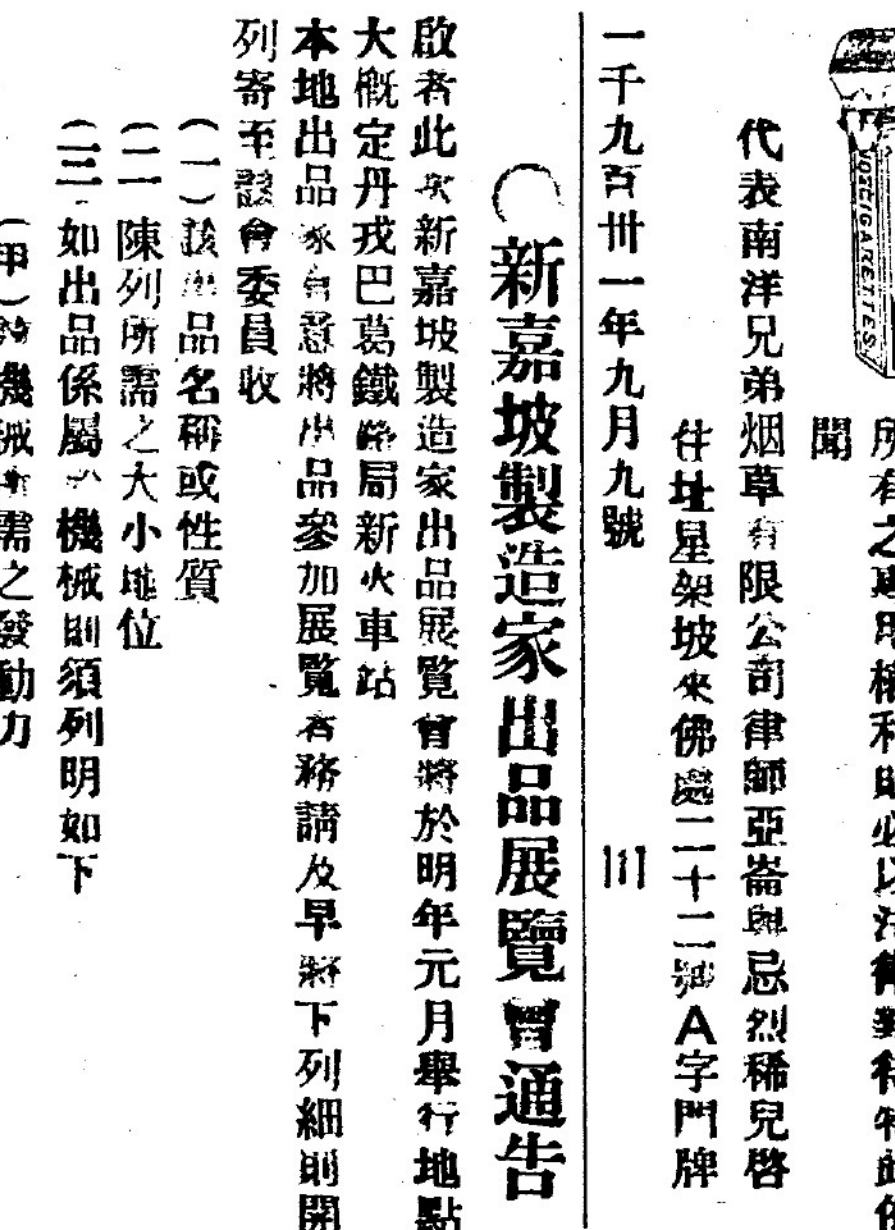 VOICIGARETTES
所有之專用權利時必以法律對待特此佈
聞
代表南洋兄弟烟草有限公司律師亞崙與忌烈稀兒啓
住址星架坡來佛處二十二號A字門牌
一千九百卅一年九月九號
〇新嘉坡製造家出品展覽會通告
啟者此次新嘉坡製造家出品展覽會將於明年元月舉行地點
大概定丹戎巴葛鐵路局新火車站
本地出品家有意將出品參加展覧者務請及早將下列細則開
列寄至該會委員收
(一)該出品名稱或性質
(二)陳列所需之大小地位
(三)如出品係屬於機械則須列明如下
(甲)該機械所需之發動力